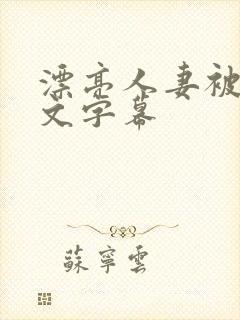 漂亮人妻被
文字幕
蘇寧雲